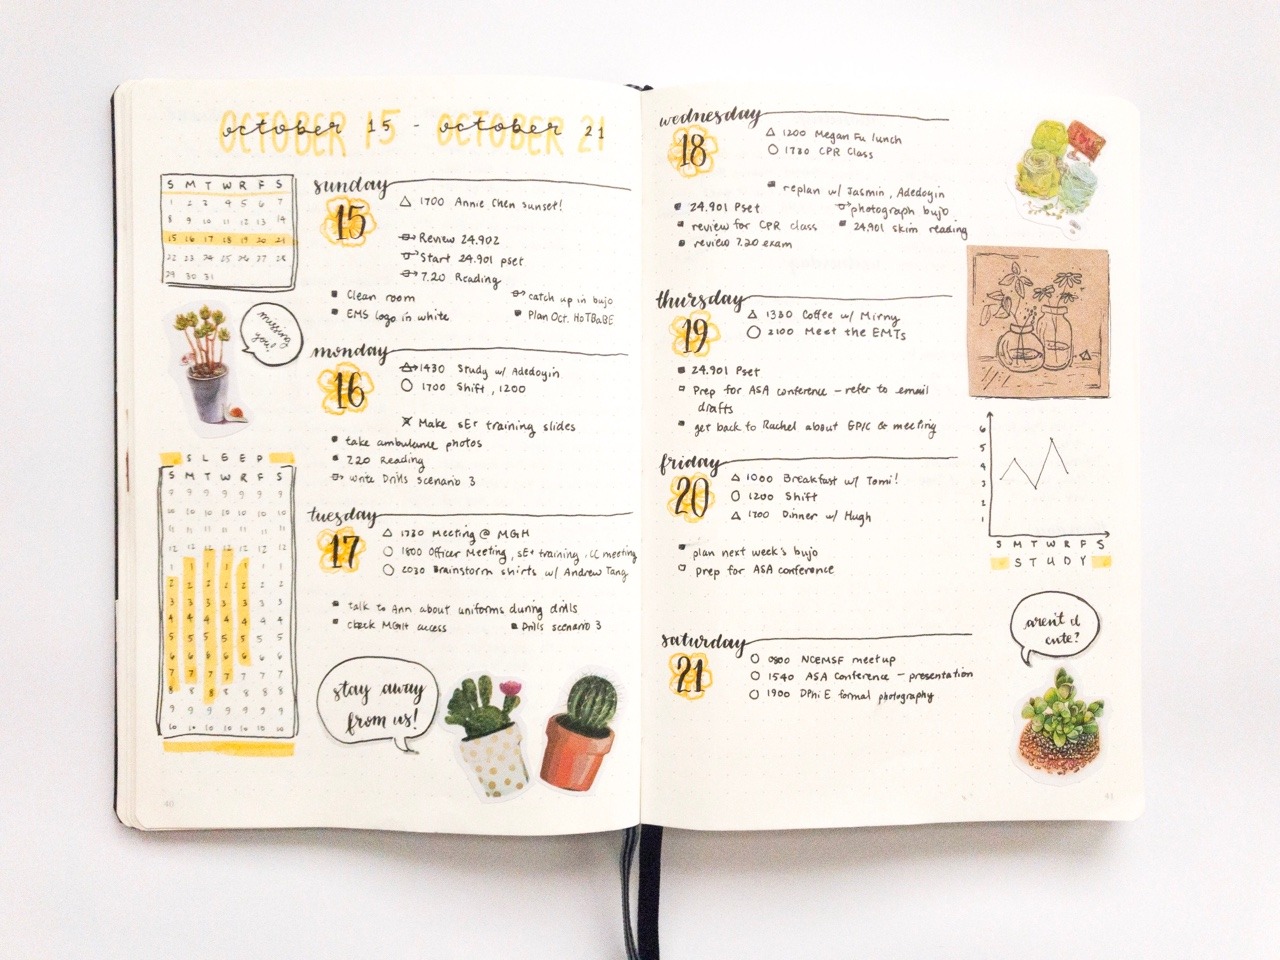 OCTOBER 15 - OCTOBER 21
october 15 - october 21
S M T W R F S
1 2 3 4 5 6 7
8 9 10 11 12 13 14
15 16 17 18 19 20 21
22 23 24 25 26 27 28
29 30 31
missing
you!
S L E E P
S M T W R F S
9 9 9 9 9 9 9
10 10 10 10 10 10 10
11 11 11 11 11 11 11
12 12 12 12 12 12 12
1 1 1 1 1 1 1
2 2 2 2 2 2 2
3 3 3 3 3 3 3
4 4 4 4 4 4 4
5 5 5 5 5 5 5
6 6 6 6 6 6 6
7 7 7 7 7 7 7
8 8 8 8 8 8 8
9 9 9 9 9 9 9
10 10 10 10 10 10 10
sunday
15
1700 Annie Chen sunset!
Review 24.902
Start 24.901 pset
7.20 Reading
Clean room
catch up in bujo
EMS logo in white
Plan Oct. HoTBaBE
monday
16
1430 Study w/ Adedoyin
1700 Shift, 1200
Make sEt training slides
take ambulance photos
7.20 Reading
write Drills scenario 3
tuesday
17
1730 Meeting @ MGH
1800 Officer Meeting, sEt training, CC meeting
2030 Brainstorm shirts w/ Andrew Tang
talk to Ann about uniforms during drills
check MGH access
Drills scenario 3
stay away
from us!
40
wednesday
18
1200 Megan Fu lunch
1730 CPR Class
replan w/ Jasmin, Adedoyin
24.901 Pset
photograph bujo
review for CPR class
24.901 skim reading
review 7.20 exam
thursday
19
1330 Coffee w/ Mirny
2100 Meet the EMTs
24.901 Pset
Prep for ASA conference - refer to email
drafts
get back to Rachel about GPIC & meeting
friday
20
1000 Breakfast w/ Tomi!
1200 Shift
1700 Dinner w/ Hugh
plan next week's bujo
prep for ASA conference
saturday
21
0800 NCEMSF meetup
1540 ASA Conference - presentation
1900 DPhiE formal photography
6
5
4
3
2
1
S M T W R F S
S T U D Y
aren't I
cute?
41